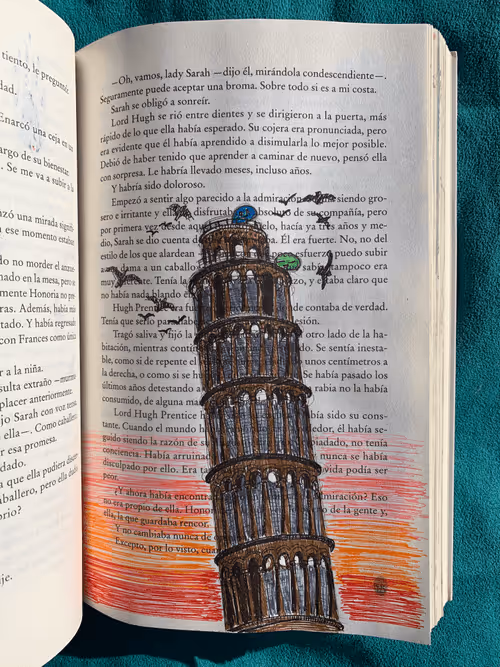 tiento, le preguntó:
dad.
Enarcó una ceja en un
argo de su bienestar.
. Se me va a subir a la
nzó una mirada
a ese momento estaban
do no morder el
nado en la mesa, pero
mente Honoria no
rras. Además, había
tado. Y había
con Frances como
r a la niña.
sulta extraño
placer anteriormente.
jo Sarah con voz
ella—. Como
er esa promesa.
dado.
a que ella pudiera
aballero, pero ella
orio?
je.
—Oh, vamos, lady Sarah —dijo él, mirándola condescendiente—.
Seguramente puede aceptar una broma. Sobre todo si es a mi costa.
Sarah se obligó a sonreír.
Lord Hugh se rió entre dientes y se dirigieron a la puerta, más
rápido de lo que ella había esperado. Su cojera era pronunciada, pero
era evidente que él había aprendido a disimularla lo mejor posible.
Debió de haber tenido que aprender a caminar de nuevo, pensó ella
con sorpresa. Le habría llevado meses, incluso años.
Y habría sido doloroso.
Empezó a sentir algo parecido a la admiración. siendo gro-
sero e irritante y ella disfrutaba absoluto de su compañía, pero
por primera vez desde hacía ya tres años y me-
dio, Sarah se dio cuenta de Él era fuerte. No, no del
estilo de los que alardean esfuerzo puedo subir
una a un caballo tampoco era
muy Tenía la y estaba claro que
no había nada blando
Hugh Prentice fu de contaba de verdad.
Tenía que serlo para
Tragó saliva y fijó la otro lado de la ha-
bitación, mientras contin Se sentía inesta-
ble, como si de repente el unos centímetros a
la derecha, o como si se h Se había pasado los
últimos años detestando a rabia no la había
consumido, de alguna ma
Lord Hugh Prentice h sido su cons-
tante. Cuando el mundo h dedor, él había se-
guido siendo la razón de s piadado, no tenía
conciencia. Había arruinad nunca se habría
disculpado por ello. Era ta vida podía ser
peor.
¿Y ahora había encontra admiración? Eso
no era propio de ella. Honor de la gente y,
ella, la que guardaba rencor.
Y no cambiaba nunca de
Excepto, por lo visto, cua